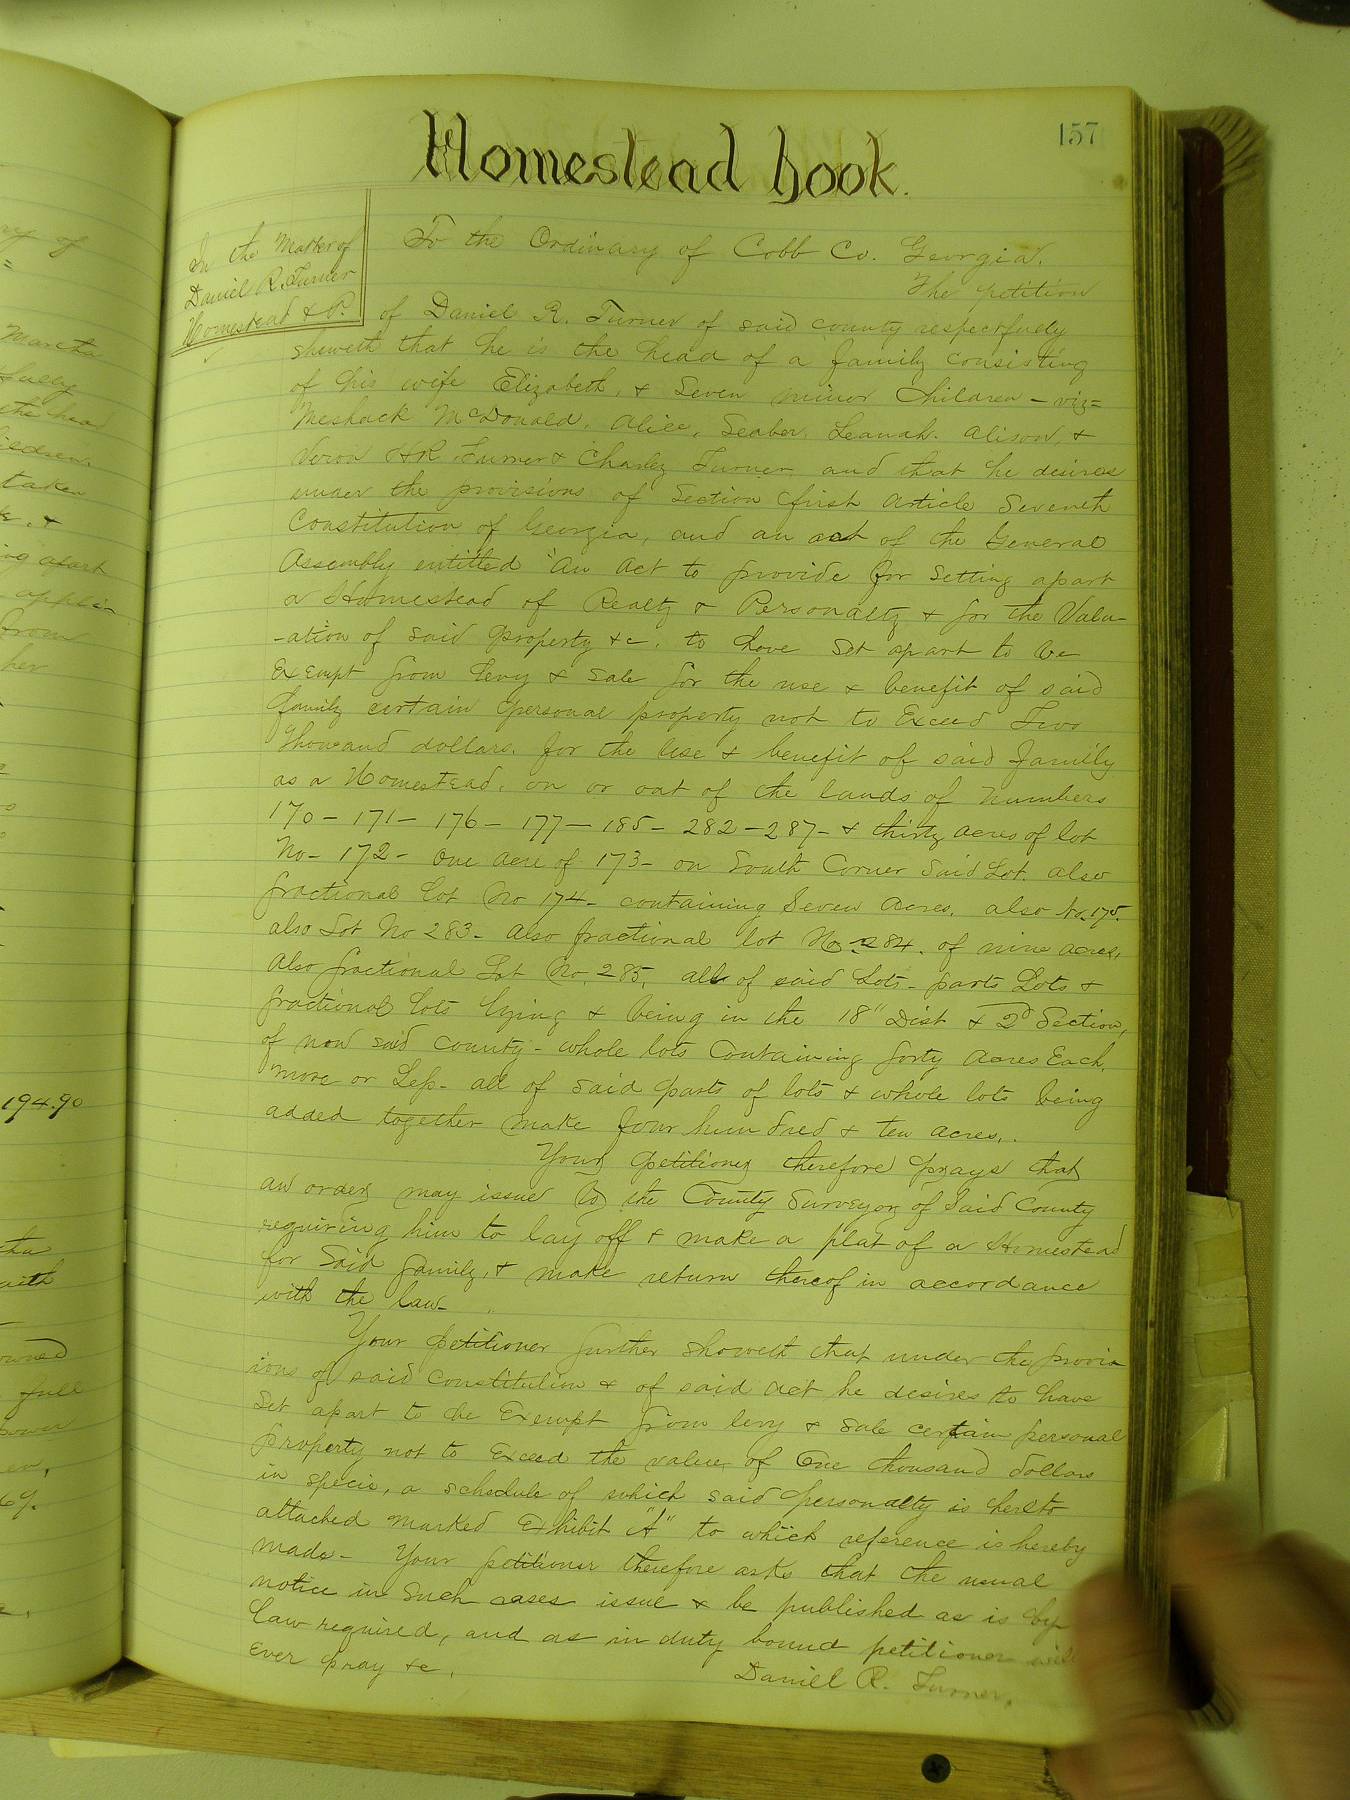 157
Homestead book.
In the Matter of
Daniel R. Turner
Homestead & P.
To the Ordinary of Cobb Co. Georgia.
The petition
of Daniel R. Turner of said county respectfully
sheweth that he is the head of a family consisting
of his wife Elizabeth, & Seven minor Children - viz=
Meshack McDonald, Alice, Seaber, Leanah. Alison, &
H R Turner & Charley Turner and that he desires
under the provisions of Section first Article Seventh
Constitution of Georgia, and an act of the General
Assembly entitled "An Act to provide for Setting apart
a Homestead of Realty & Personalty & for the Valu-
-ation of said property &c. to have set apart to be
Exempt from levy & sale for the use & benefit of said
family certain personal property not to Exceed Two
Thousand dollars. for the use & benefit of said Family
as a Homestead, on or out of the lands of Numbers
170 - 171 - 176 - 177 - 185 - 282 - 287 - & thirty acres of lot
No - 172 - One Acre of 173 - on South Corner Said Lot. also
fractional lot No 174 - containing Seven Acres, also No. 175.
also Lot No 283 - Also fractional lot No. 284. of nine acres,
Also fractional Lot No. 285, all of said Lots - parts Lots &
fractional lots lying & being in the 18" Dist & 2d Section,
of now said county - whole lots Containing forty Acres Each,
more or Less - all of said parts of lots & whole lots being
added together make four hundred & ten acres,.
Your petitioner therefore prays that
an order may issue to the County Surveyor of Said County
requiring him to lay off & make a plat of a Homestead
for Said family, & make return thereof in accordance
with the law -
Your petitioner further Showeth that under the provis
ions of said Constitution & of said Act he desires to have
Set apart to be Exempt from levy & sale certain personal
property not to Exceed the value of One thousand dollars
in specie, a schedule of which said personalty is hereto
attached marked Exhibit "A" to which reference is hereby
made - Your petitioner therefore asks that the usual
notice in Such cases issue & be published as is by
law required, and as in duty bound petitioner will
Ever pray &c.
Daniel R. Turner,
Martha
taken
apart
from
her
194.90
full